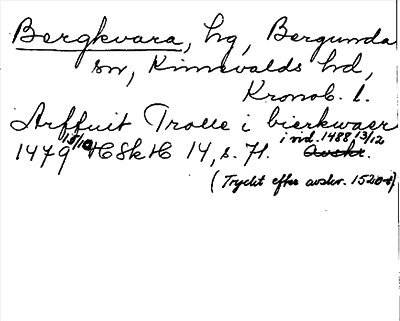 Bergkvara, hg, Bergunda
sn, Kinnevalds hd,
Kronob. l.
Arffuit Trolle i bierkwaer
1479 15/10 HSkH 14, s. 71. i vid. 1488 13/12 Avskr.
(Tryckt efter avskr. 1520-t)